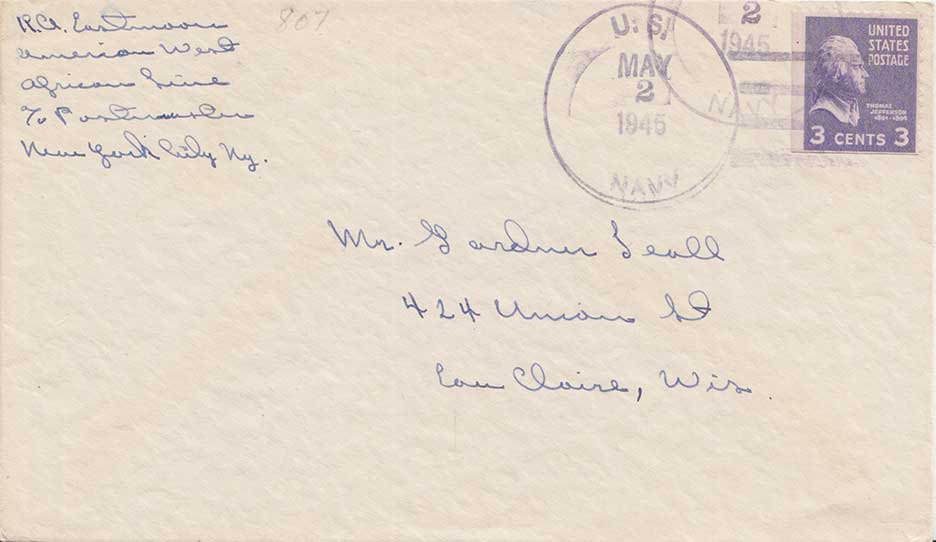 R.A. Eastmoore
American West
African Line
℅ Postmaster
New York City Ny.
807
U.S.
MAY
2
1945
NAVY
2
1945
NAVY
UNITED
STATES
POSTAGE
THOMAS
JEFFERSON
1801-1809
3 CENTS 3
Mr. Gardner
424 Union St
Eau Claire, Wis.